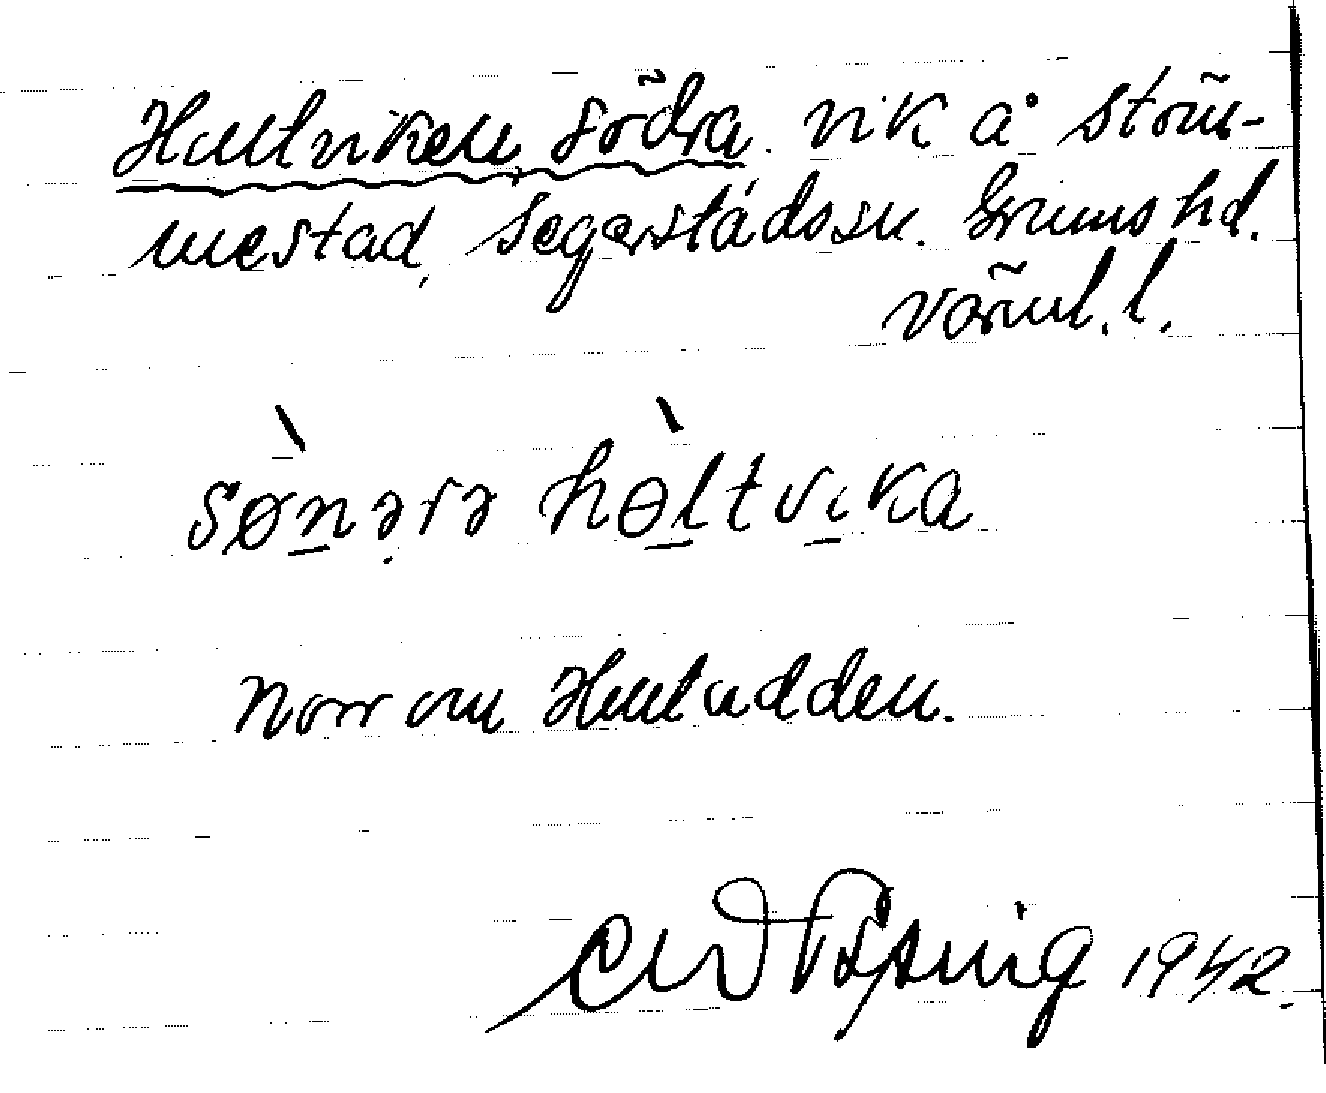 Hultviken, södra. vik å Ström-
mestad, Segerstads sn. Grums hd.
Värml. l.
sønərə høltvika
Norr om Hultudden.
1942.